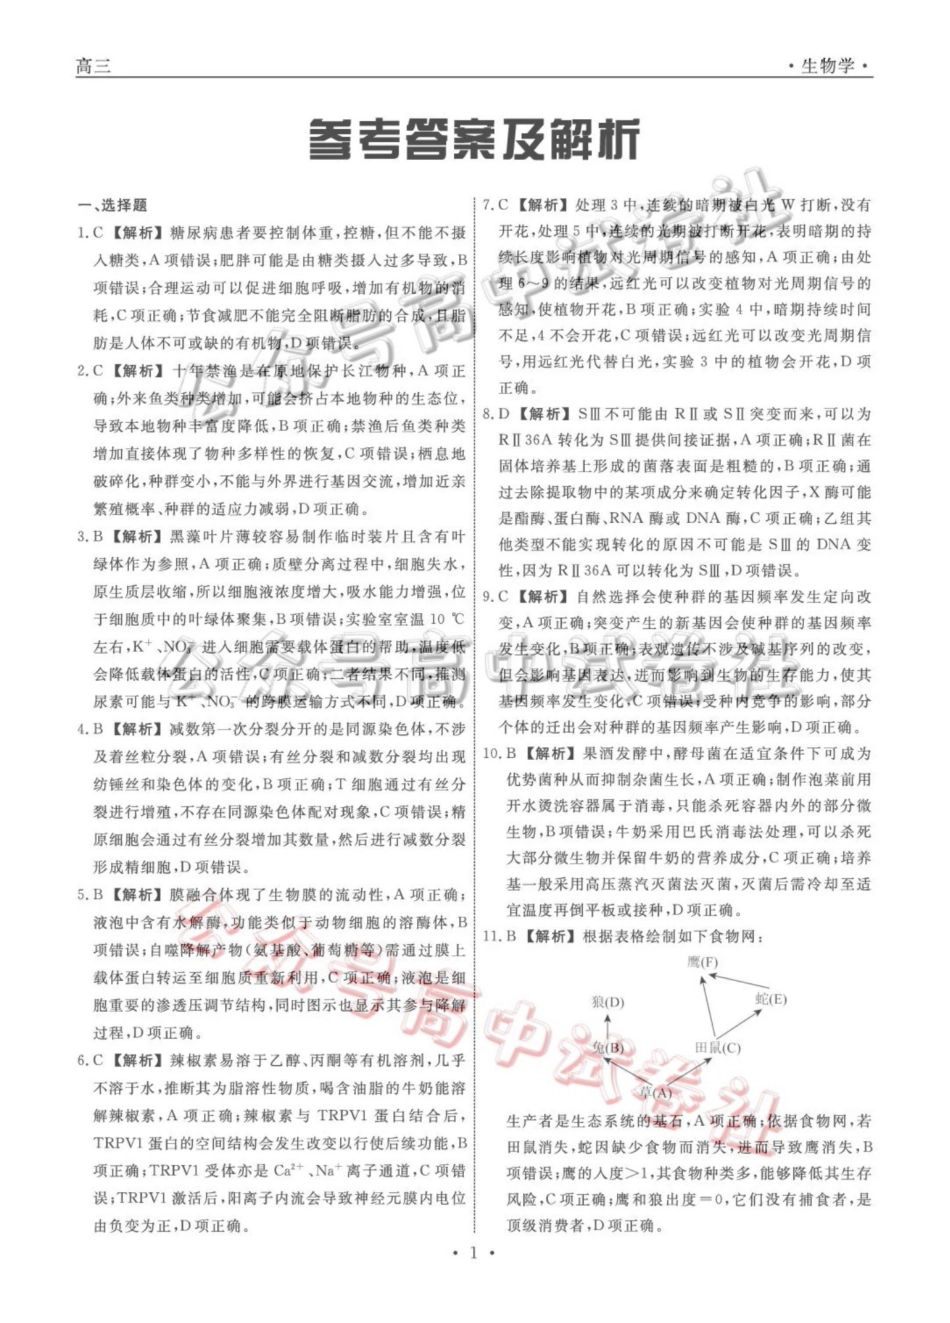 高三
·生物学·
参考答案及解析
一、选择题
1.C 【解析】糖尿病患者要控制体重,控糖,但不能不摄
入糖类,A项错误;肥胖可能是由糖类摄入过多导致,B
项错误;合理运动可以促进细胞呼吸,增加有机物的消
耗,C项正确;节食减肥不能完全阻断脂肪的合成,且脂
肪是人体不可或缺的有机物,D项错误。
2.C 【解析】十年禁渔是在原地保护长江物种,A项正
确;外来鱼类种类增加,可能会挤占本地物种的生态位,
导致本地物种丰富度降低,B项正确;禁渔后鱼类种类
增加直接体现了物种多样性的恢复,C项错误;栖息地
破碎化,种群变小,不能与外界进行基因交流,增加近亲
繁殖概率、种群的适应力减弱,D项正确。
3.B 【解析】黑藻叶片薄较容易制作临时装片且含有叶
绿体作为参照,A项正确;质壁分离过程中,细胞失水,
原生质层收缩,所以细胞液浓度增大,吸水能力增强,位
于细胞质中的叶绿体聚集,B项错误;实验室室温10 ℃
左右,K⁺、NO₃⁻进入细胞需要载体蛋白的帮助,温度低
会降低载体蛋白的活性,C项正确;二者结果不同,推测
尿素可能与K⁺、NO₃⁻的跨膜运输方式不同,D项正确。
4.B 【解析】减数第一次分裂分开的是同源染色体,不涉
及着丝粒分裂,A项错误;有丝分裂和减数分裂均出现
纺锤丝和染色体的变化,B项正确;T细胞通过有丝分
裂进行增殖,不存在同源染色体配对现象,C项错误;精
原细胞会通过有丝分裂增加其数量,然后进行减数分裂
形成精细胞,D项错误。
5.B 【解析】膜融合体现了生物膜的流动性,A项正确;
液泡中含有水解酶,功能类似于动物细胞的溶酶体,B
项错误;自噬降解产物(氨基酸、葡萄糖等)需通过膜上
载体蛋白转运至细胞质重新利用,C项正确;液泡是细
胞重要的渗透压调节结构,同时图示也显示其参与降解
过程,D项正确。
6.C 【解析】辣椒素易溶于乙醇、丙酮等有机溶剂,几乎
不溶于水,推断其为脂溶性物质,喝含油脂的牛奶能溶
解辣椒素,A项正确;辣椒素与TRPV1蛋白结合后,
TRPV1蛋白的空间结构会发生改变以行使后续功能,B
项正确;TRPV1受体亦是Ca²⁺、Na⁺离子通道,C项错
误;TRPV1激活后,阳离子内流会导致神经元膜内电位
由负变为正,D项正确。
7.C 【解析】处理3中,连续的暗期被白光W打断,没有
开花,处理5中,连续的光期被打断开花,表明暗期的持
续长度影响植物对光周期信号的感知,A项正确;由处
理6~9的结果,远红光可以改变植物对光周期信号的
感知,使植物开花,B项正确;实验4中,暗期持续时间
不足,4不会开花,C项错误;远红光可以改变光周期信
号,用远红光代替白光,实验3中的植物会开花,D项
正确。
8.D 【解析】SⅢ不可能由RⅡ或SⅡ突变而来,可以为
RⅡ36A转化为SⅢ提供间接证据,A项正确;RⅡ菌在
固体培养基上形成的菌落表面是粗糙的,B项正确;通
过去除提取物中的某项成分来确定转化因子,X酶可能
是酯酶、蛋白酶、RNA酶或DNA酶,C项正确;乙组其
他类型不能实现转化的原因不可能是SⅢ的DNA变
性,因为RⅡ36A可以转化为SⅢ,D项错误。
9.C 【解析】自然选择会使种群的基因频率发生定向改
变,A项正确;突变产生的新基因会使种群的基因频率
发生变化,B项正确;表观遗传不涉及碱基序列的改变,
但会影响基因表达,进而影响到生物的生存能力,使其
基因频率发生变化,C项错误;受种内竞争的影响,部分
个体的迁出会对种群的基因频率产生影响,D项正确。
10.B 【解析】果酒发酵中,酵母菌在适宜条件下可成为
优势菌种从而抑制杂菌生长,A项正确;制作泡菜前用
开水烫洗容器属于消毒,只能杀死容器内外的部分微
生物,B项错误;牛奶采用巴氏消毒法处理,可以杀死
大部分微生物并保留牛奶的营养成分,C项正确;培养
基一般采用高压蒸汽灭菌法灭菌,灭菌后需冷却至适
宜温度再倒平板或接种,D项正确。
11.B 【解析】根据表格绘制如下食物网:
鹰(F)
狼(D)
蛇(E)
兔(B)
田鼠(C)
草(A)
生产者是生态系统的基石,A项正确;依据食物网,若
田鼠消失,蛇因缺少食物而消失,进而导致鹰消失,B
项错误;鹰的人度>1,其食物种类多,能够降低其生存
风险,C项正确;鹰和狼出度=0,它们没有捕食者,是
顶级消费者,D项正确。
·1·
公众号高中试卷社
公众号高中试卷社
公众号高中试卷社